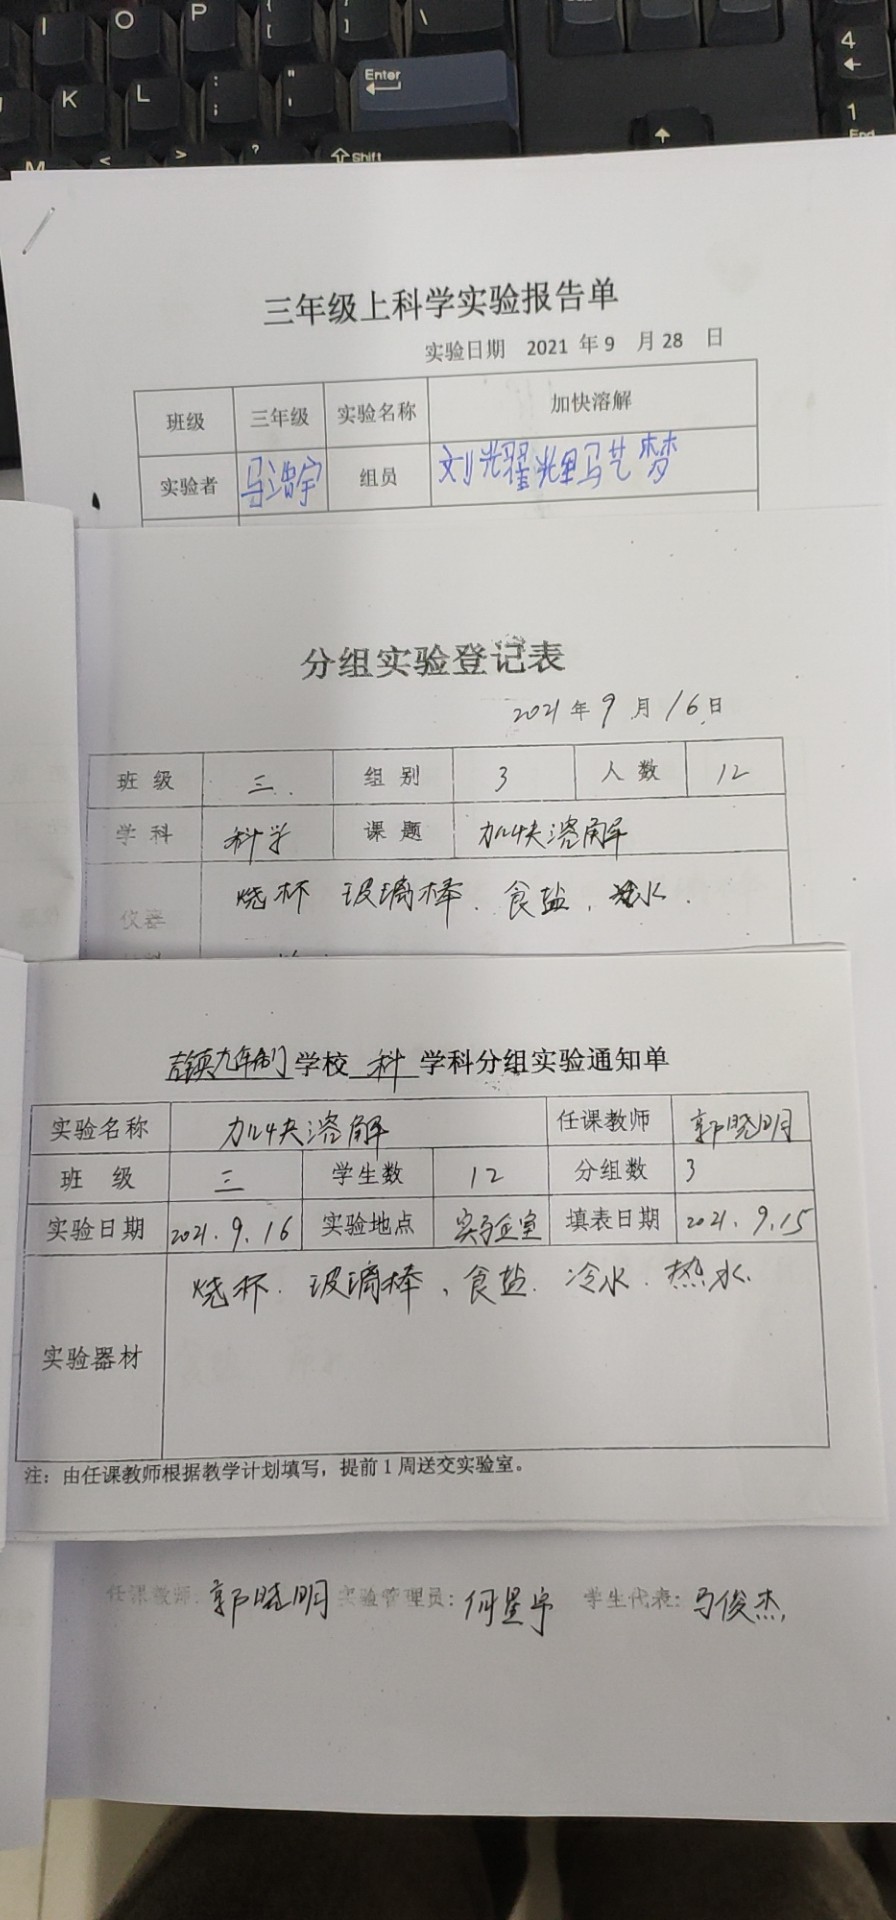 I O P { [ } ] \
K L : ; " ' Enter 4
1
M < > ? Shift End
三年级上科学实验报告单
实验日期 2021 年 9 月 28 日
班级 三年级 实验名称 加快溶解
实验者 马浩宇 组员 刘光耀 马艺梦
分组实验登记表
2021年9月16日
班级 三 组别 3 人数 12
学科 科学 课题 加快溶解
仪器 烧杯 玻璃棒、食盐、水.
镇九年制学校 科 学科分组实验通知单
实验名称 加快溶解 任课教师 郭晓明
班级 三 学生数 12 分组数 3
实验日期 2021.9.16 实验地点 实验室 填表日期 2021.9.15
实验器材 烧杯.玻璃棒、食盐.冷水.热水.
注：由任课教师根据教学计划填写，提前1周送交实验室。
任课教师:郭晓明 实验管理员:何星宇 学生代表:马俊杰